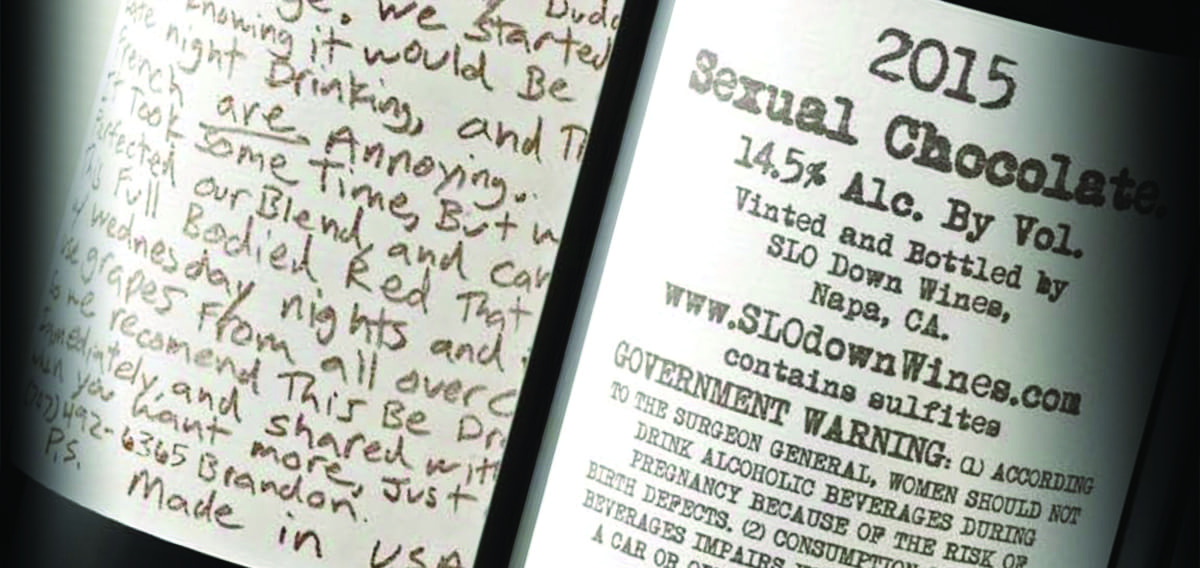 Dudo
ge. We started
knowing it would Be
ate night Drinking, and Th
French are Annoying..
It Took some Time, But w
Perfected our Blend, and car
This Full Bodied Red That
wednesday nights and
use grapes from all over C
So we recomend This Be Dr
immediately, and shared with
when you want more, Just
(707) 492-6365 Brandon.
P.S.
Made in USA
2015
Sexual Chocolate.
14.5% Alc. By Vol.
Vinted and Bottled by
SLO Down Wines,
Napa, CA.
www.SLOdownWines.com
contains sulfites
GOVERNMENT WARNING: (1) ACCORDING
TO THE SURGEON GENERAL, WOMEN SHOULD NOT
DRINK ALCOHOLIC BEVERAGES DURING
PREGNANCY BECAUSE OF THE RISK OF
BIRTH DEFECTS. (2) CONSUMPTION
BEVERAGES IMPAIRS
A CAR OR